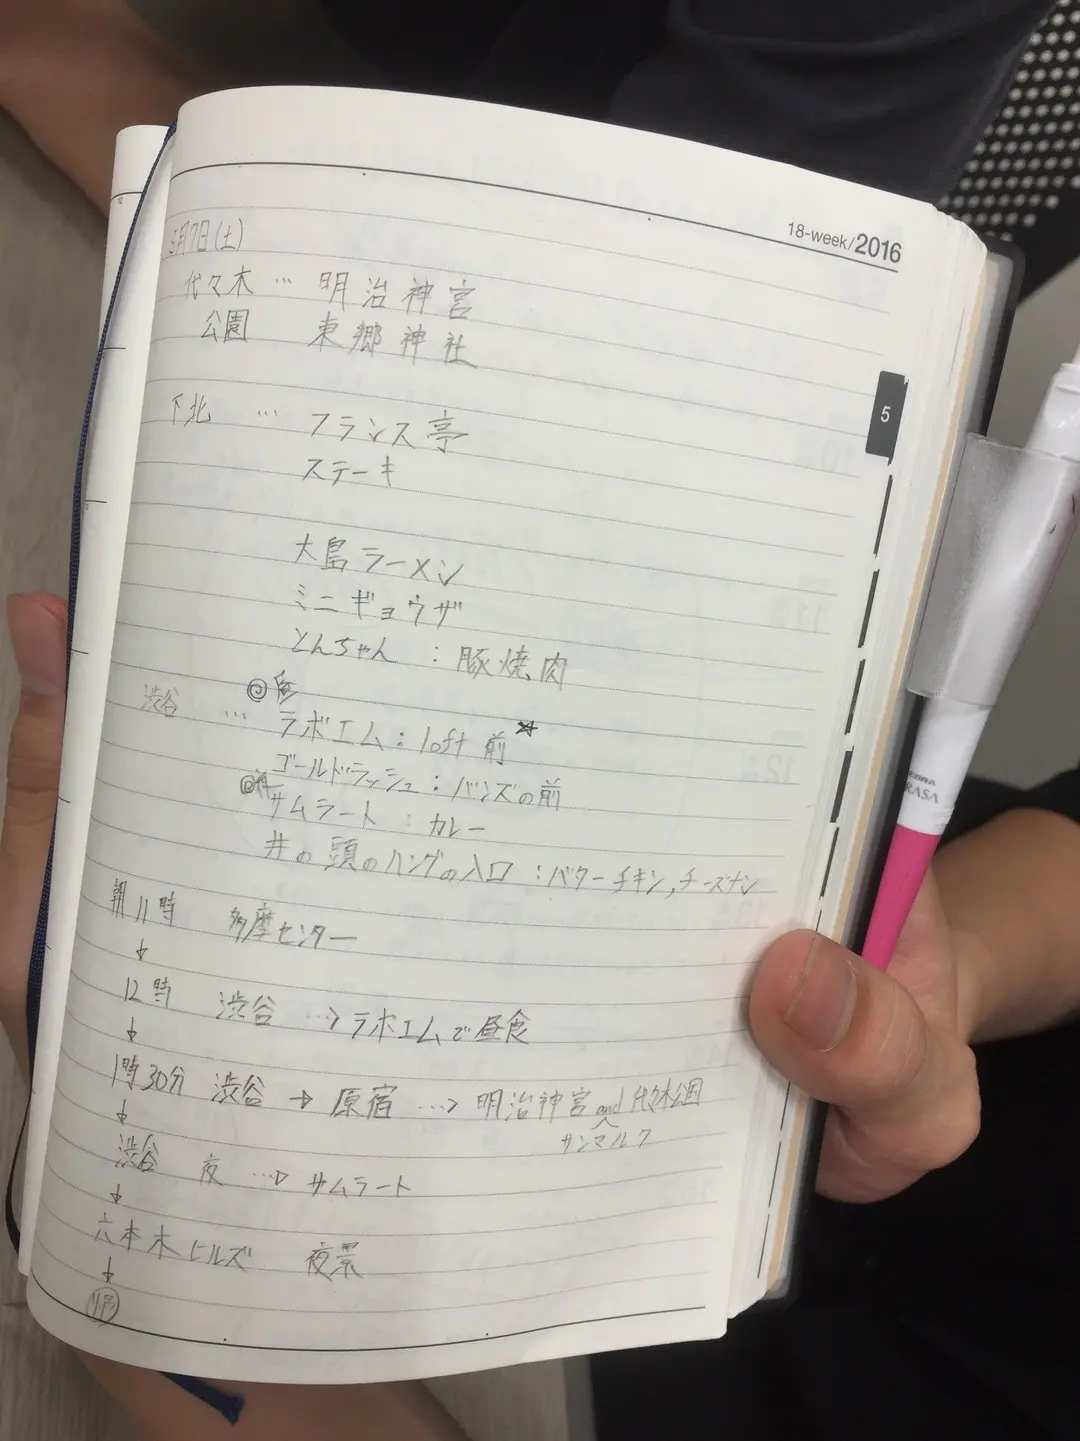 18-week/2016
5月7日(土)
代々木 … 明治神宮
公園 東郷神社
5
下北 … フランス亭
ステーキ
大島ラーメン
ミニギョウザ
とんちゃん : 豚焼肉
◎昼
渋谷 … ラボエム : loft 前 ☆
ゴールドラッシュ : ハンズの前
◎夜 サムラート : カレー
井の頭のハングの入口 : バターチキン, チーズナン
朝11時 多摩センター
↓
12時 渋谷 …> ラボエムで昼食
↓
1時30分 渋谷 → 原宿 …> 明治神宮 and 代々木公園
↓ サンマルク
渋谷 夜 …> サムラート
↓
六本木ヒルズ 夜景
↓
ZEBRA
SARASA